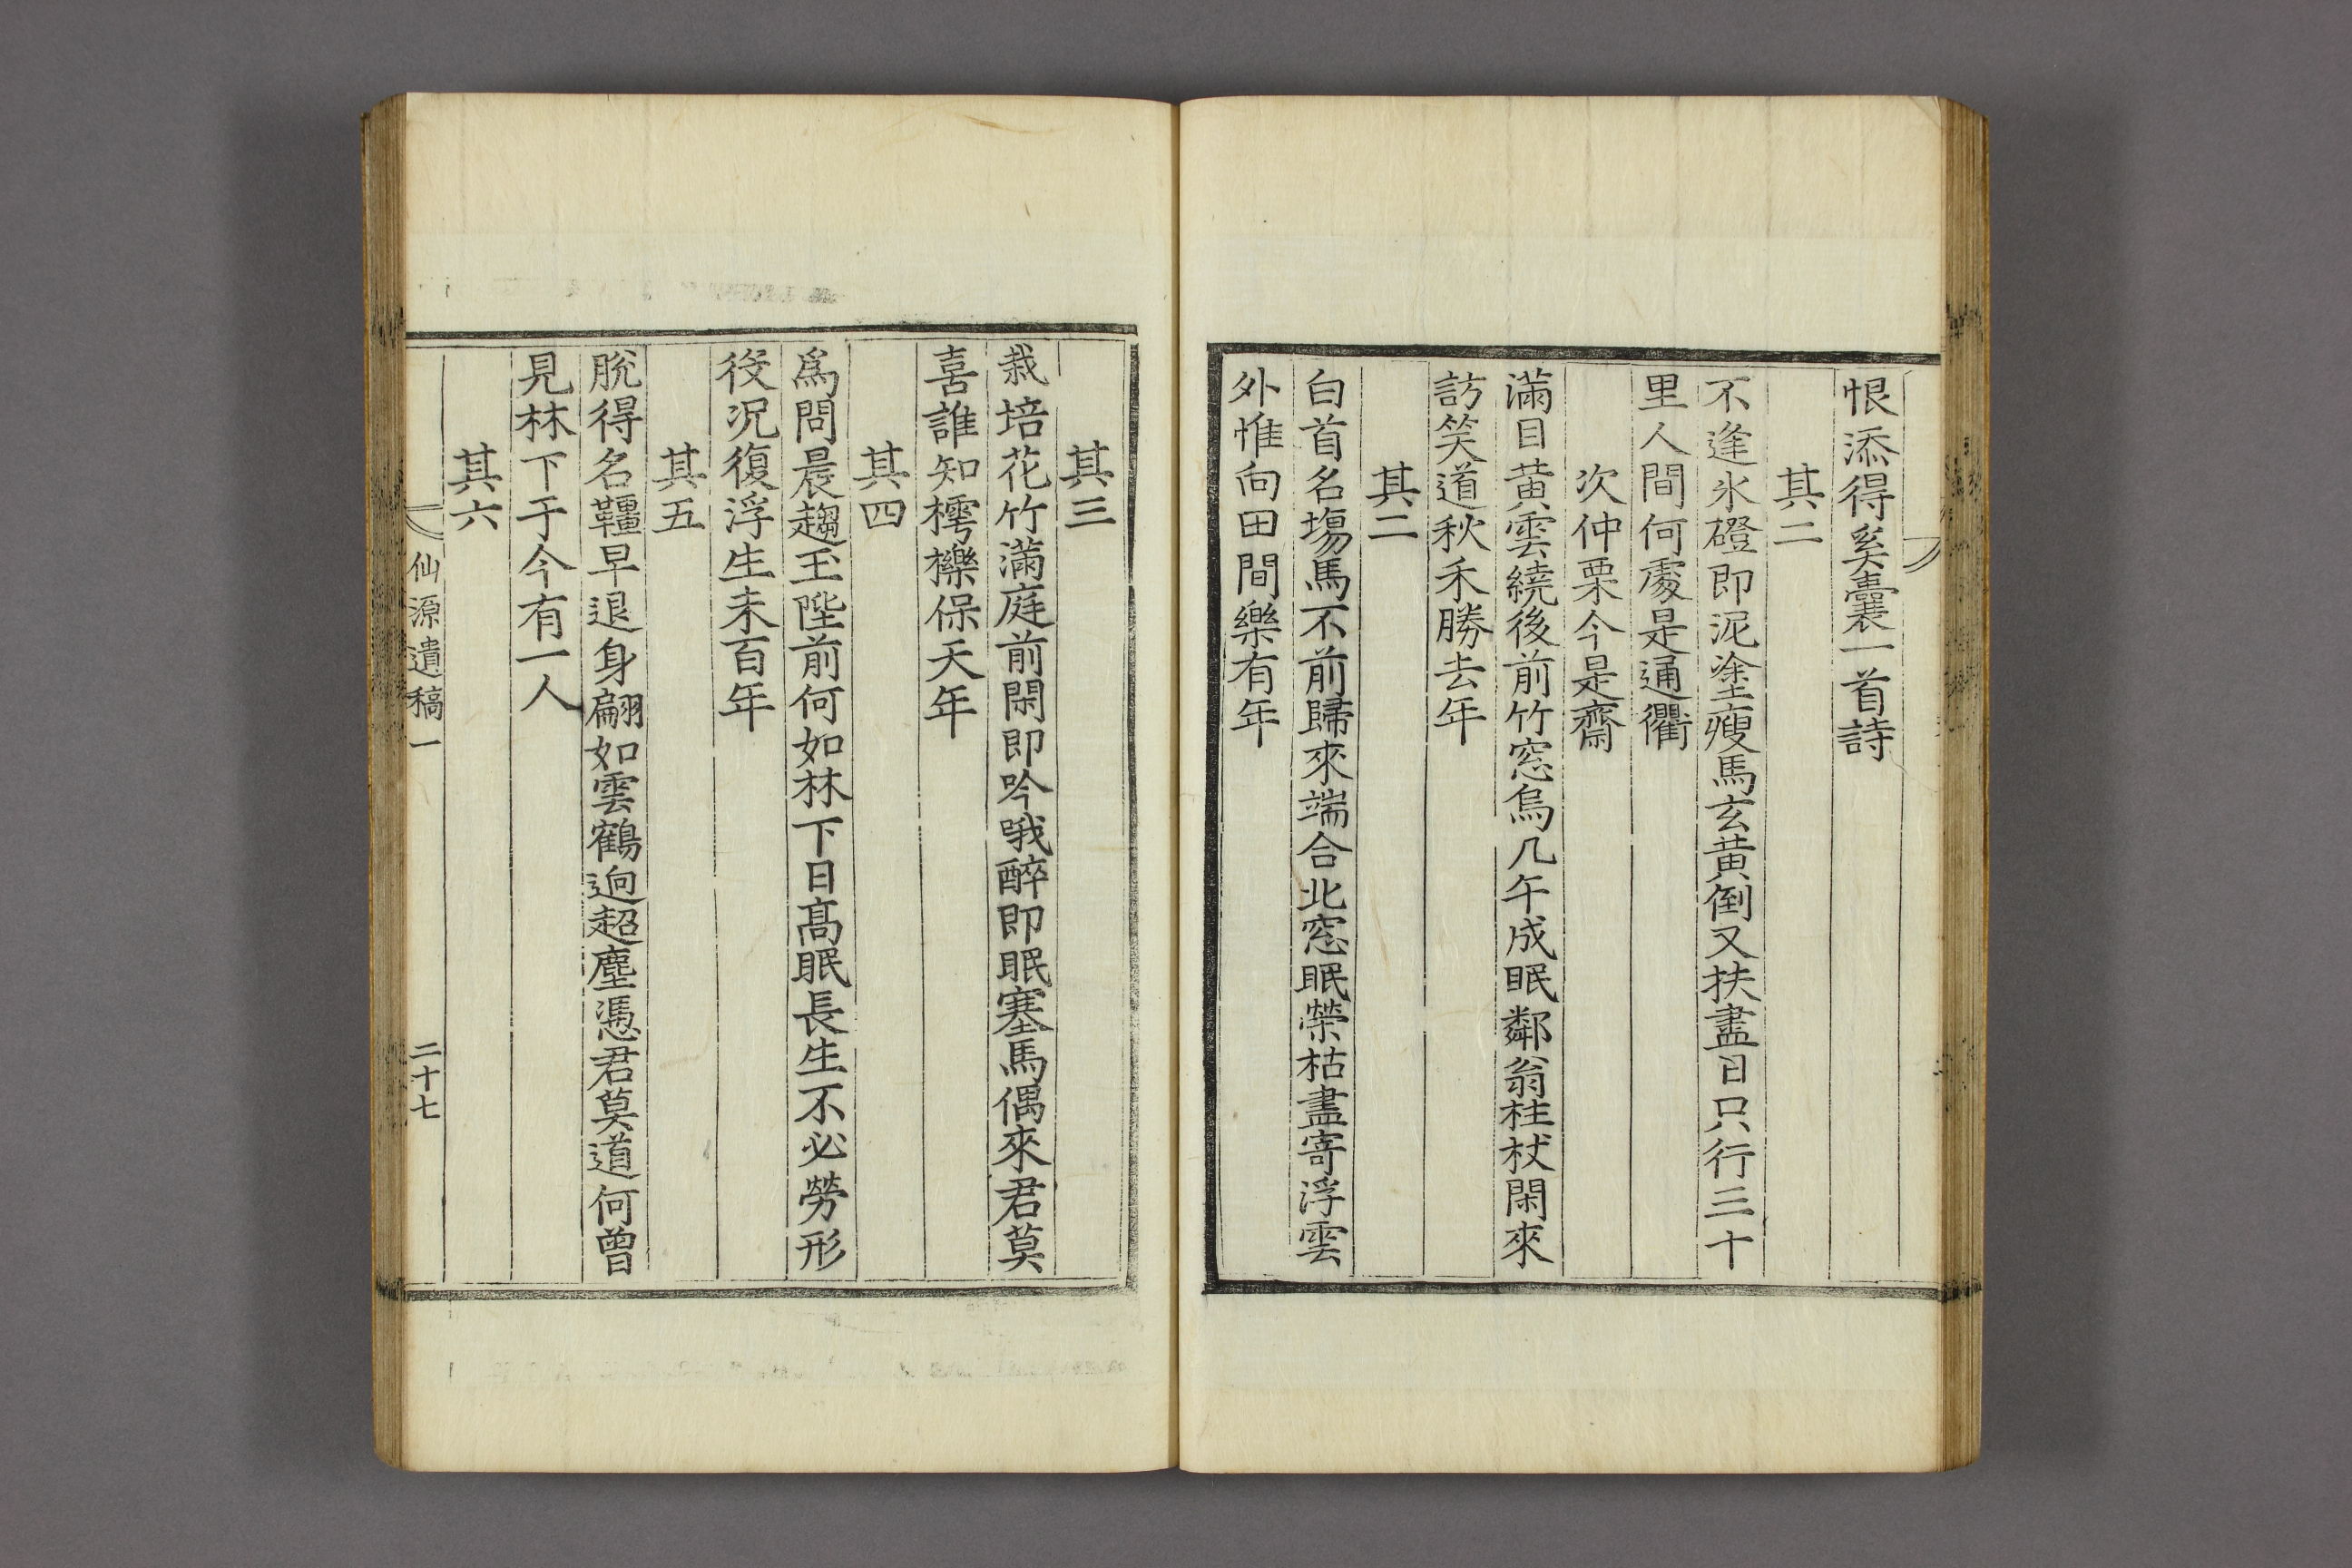 恨添得奚囊一首詩
其二
不逢氷磴即泥塗瘦馬玄黄倒又扶盡日只行三十
里人間何處是通衢
次仲栗今是齋
滿目黄雲繞後前竹窓烏几午成眠鄰翁柱杖閑來
訪笑道秋禾勝去年
其二
白首名塲馬不前歸來端合北窓眠榮枯盡寄浮雲
外惟向田間樂有年
其三
栽培花竹滿庭前閑即吟哦醉即眠塞馬偶來君莫
喜誰知樗櫟保天年
其四
爲問晨趨玉陛前何如林下日髙眠長生不必勞形
役况復浮生未百年
其五
脫得名韁早退身翩如雲鶴逈超塵憑君莫道何曾
見林下于今有一人
其六
仙源遺稿一
二十七